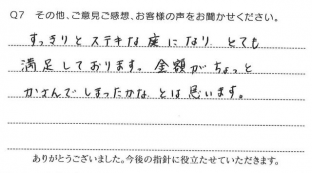 Q7 その他、ご意見ご感想、お客様の声をお聞かせください。
すっきりとステキな庭になり、とても
満足しております。金額がちょっと
かさんでしまったかな、とは思います。
ありがとうございました。今後の指針に役立たせていただきます。